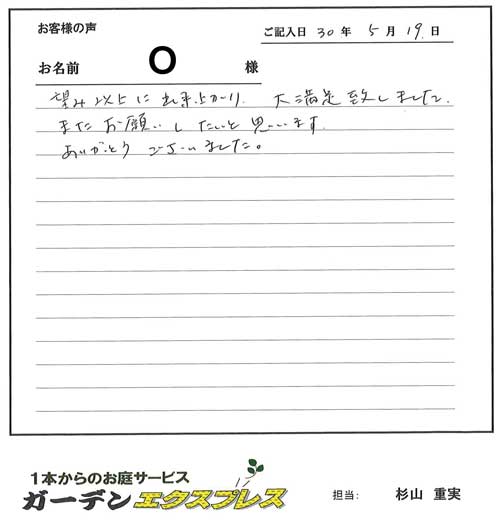 お客様の声
ご記入日 30 年 5 月 19 日
お名前 O 様
望み以上に出来上がり、大満足致しました。
またお願いしたいと思います。
ありがとうございました。
1本からのお庭サービス
ガーデンエクスプレス
担当: 杉山 重実